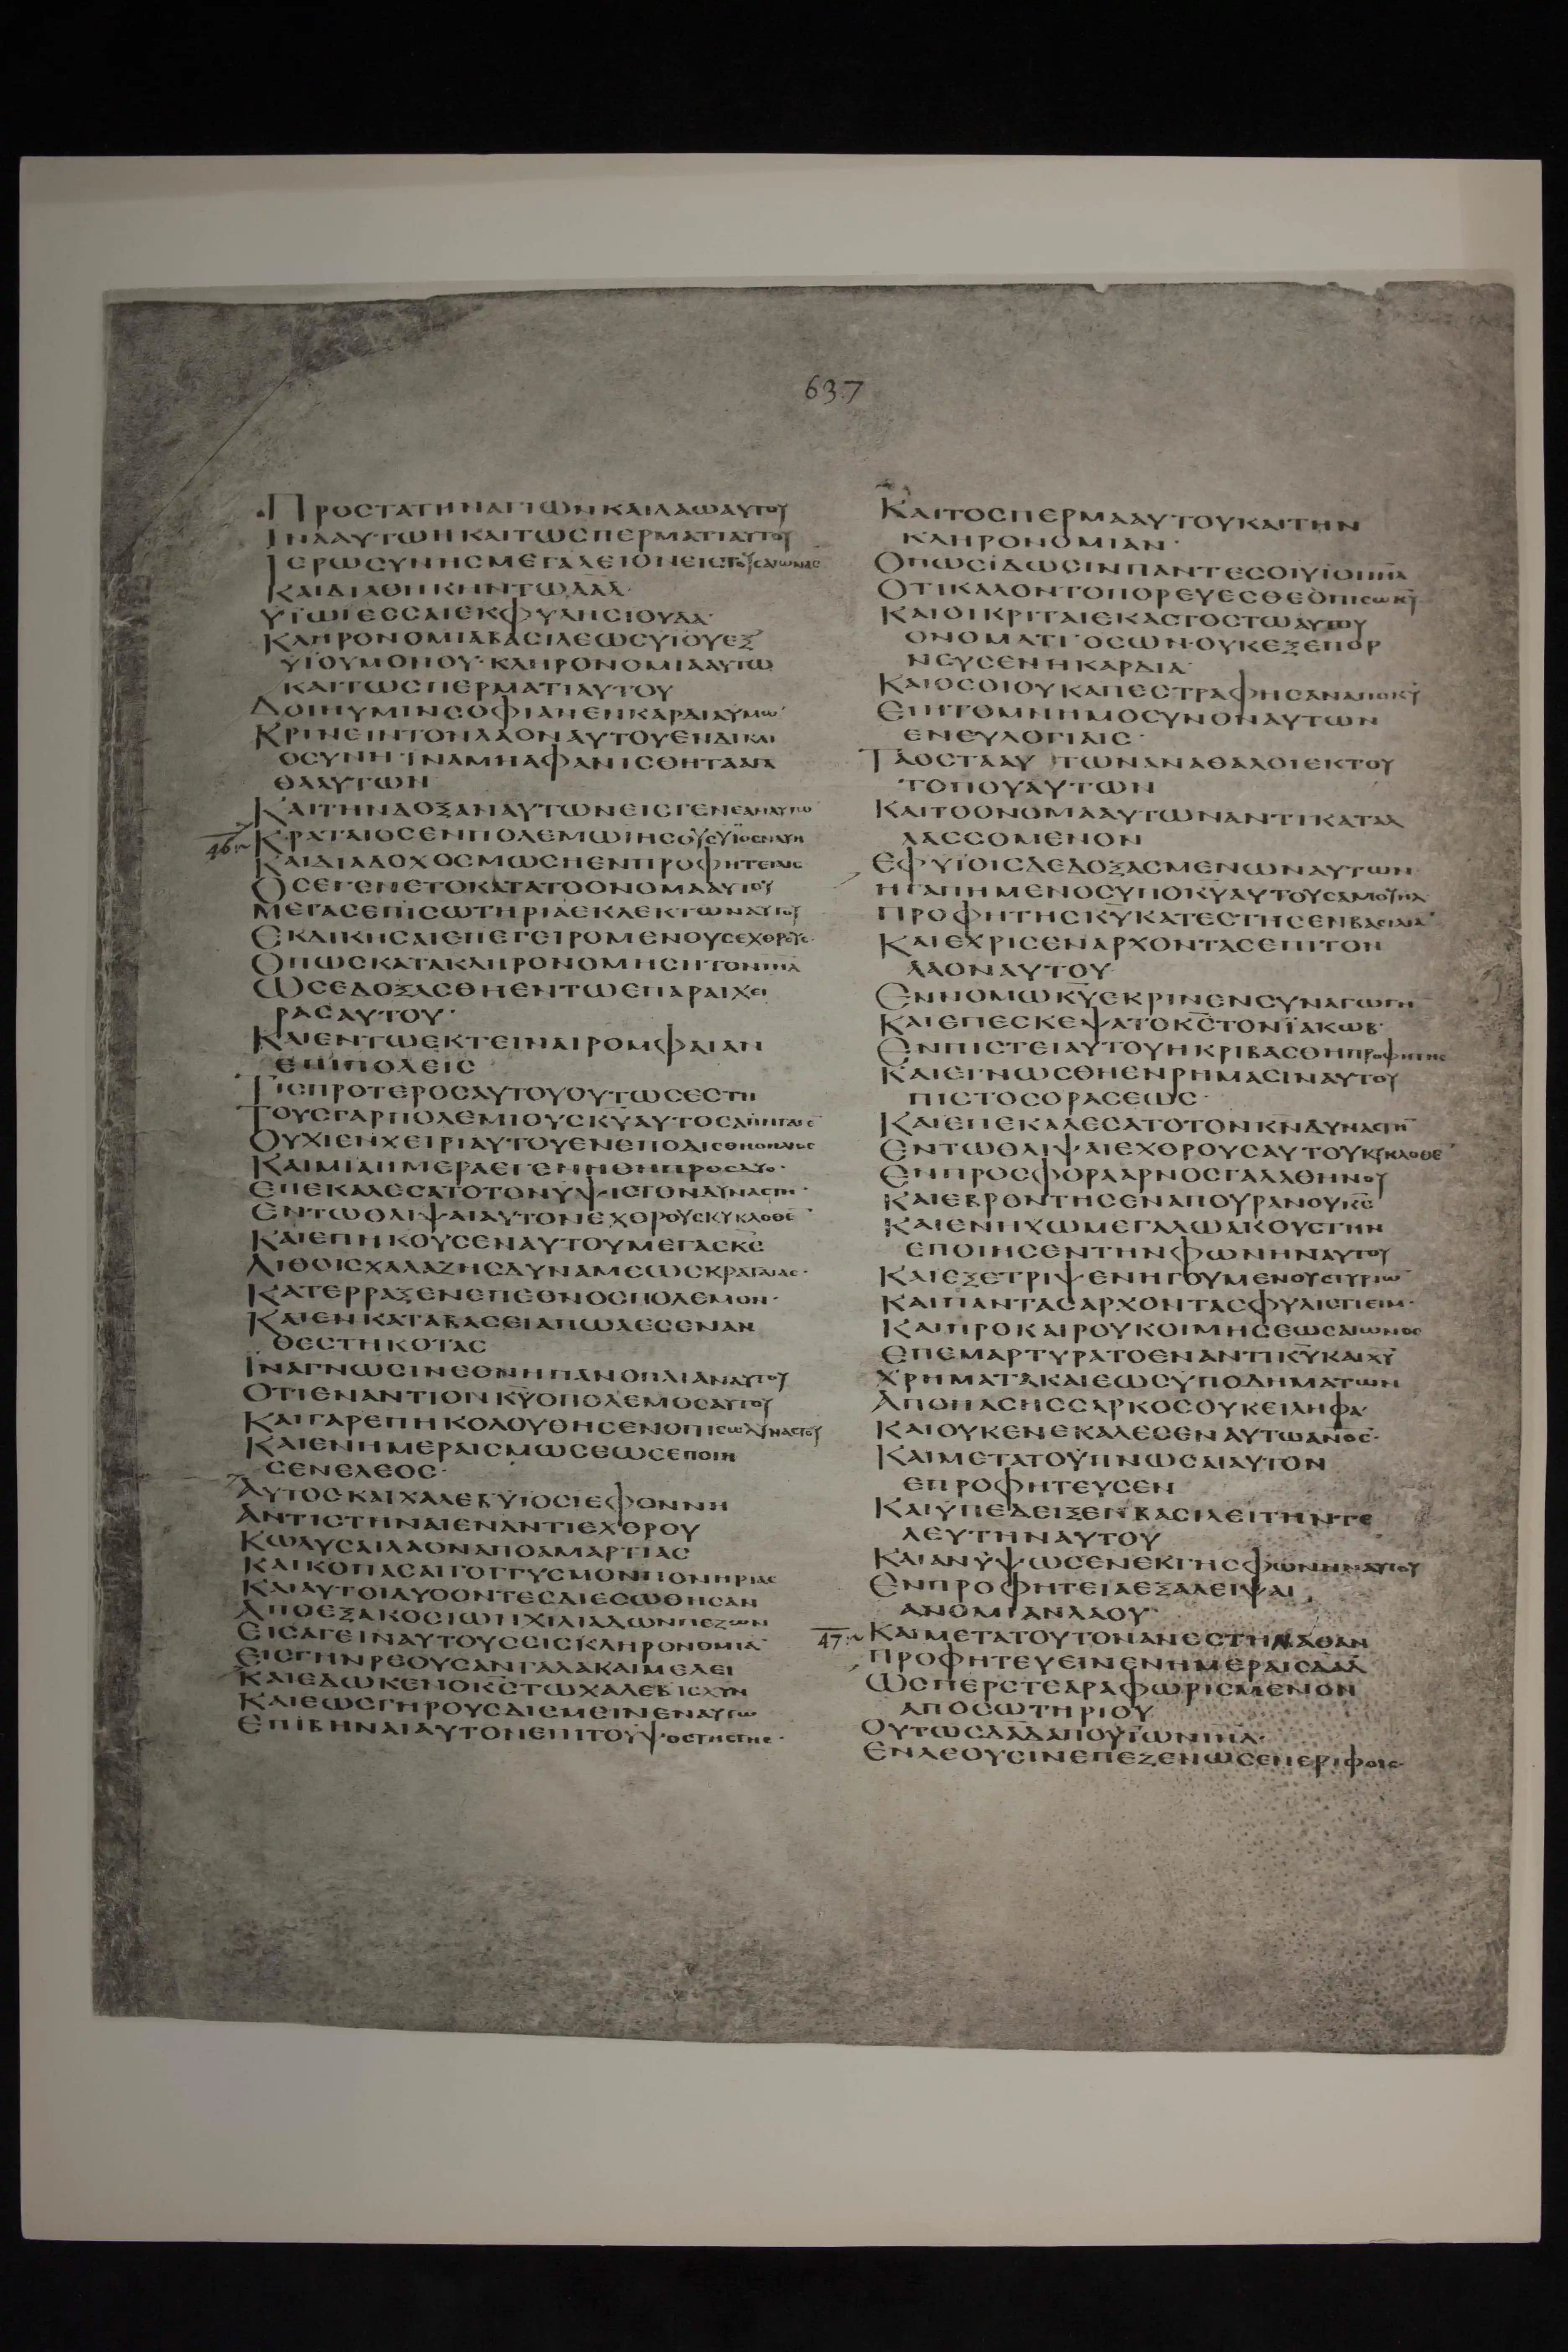 637
ΠΡΟΣΤΑΤΗΝΑΓΙΩΝΚΑΙΛΑΩΑΥΤΟΥ
ΙΝΑΑΥΤΩΗΚΑΙΤΩΣΠΕΡΜΑΤΙΑΥΤΟΥ
ΙΕΡΩΣΥΝΗΣΜΕΓΑΛΕΙΟΝΕΙΣΤΟΥΣΑΙΩΝΑΣ
ΚΑΙΔΙΑΘΗΚΗΝΤΩΔΑΔ·
ΥΪΩΙΕΣΣΑΙΕΚΦΥΛΗΣΙΟΥΔΑ·
ΚΛΗΡΟΝΟΜΙΑΒΑΣΙΛΕΩΣΥΙΟΥΕΞ
ΥΪΟΥΜΟΝΟΥ·ΚΛΗΡΟΝΟΜΙΑΑΥΤΩ
ΚΑΙΤΩΣΠΕΡΜΑΤΙΑΥΤΟΥ
ΔΟΙΗΥΜΙΝΣΟΦΙΑΝΕΝΚΑΡΔΙΑΥΜΩ
ΚΡΙΝΕΙΝΤΟΝΛΑΟΝΑΥΤΟΥΕΝΔΙΚΑΙ
ΟΣΥΝΗ·ΪΝΑΜΗΑΦΑΝΙΣΘΗΤΑΑΓΑ
ΘΑΑΥΤΩΝ
ΚΑΙΤΗΝΔΟΞΑΝΑΥΤΩΝΕΙΣΓΕΝΕΑΝΑΥΤΩ
46 ΚΡΑΤΑΙΟΣΕΝΠΟΛΕΜΩΙΗΣΟΥΣΥΪΟΣΝΑΥΗ
ΚΑΙΔΙΑΔΟΧΟΣΜΩΣΗΕΝΠΡΟΦΗΤΕΙΑΙΣ
ΟΣΕΓΕΝΕΤΟΚΑΤΑΤΟΟΝΟΜΑΑΥΤΟΥ
ΜΕΓΑΣΕΠΙΣΩΤΗΡΙΑΕΚΛΕΚΤΩΝΑΥΤΟΥ
ΕΚΔΙΚΗΣΑΙΕΠΕΓΕΙΡΟΜΕΝΟΥΣΕΧΘΡΟΥΣ·
ΟΠΩΣΚΑΤΑΚΛΗΡΟΝΟΜΗΣΗΤΟΝΙΗΛ
ΩΣΕΔΟΞΑΣΘΗΕΝΤΩΕΠΑΡΑΙΧΕΙ
ΡΑΣΑΥΤΟΥ·
ΚΑΙΕΝΤΩΕΚΤΕΙΝΑΙΡΟΜΦΑΙΑΝ
ΕΠΙΠΟΛΕΙΣ
ΤΙΣΠΡΟΤΕΡΟΣΑΥΤΟΥΟΥΤΩΣΕΣΤΗ
ΤΟΥΣΓΑΡΠΟΛΕΜΙΟΥΣΚΥΑΥΤΟΣ
ΟΥΧΙΕΝΧΕΙΡΙΑΥΤΟΥΕΝΕΠΟΔΙΣΘΗΟΗΛΙΟΣ
ΚΑΙΜΙΑΗΜΕΡΑΕΓΕΝΝΗΘΗΠΡΟΣΔΥΟ·
ΕΠΕΚΑΛΕΣΑΤΟΤΟΝΥΨΙΣΤΟΝΔΥΝΑΣΤΗ·
ΕΝΤΩΘΛΙΨΑΙΑΥΤΟΝΕΧΘΡΟΥΣΚΥΚΛΟΘΕ
ΚΑΙΕΠΗΚΟΥΣΕΝΑΥΤΟΥΜΕΓΑΣΚΣ
ΛΙΘΟΙΣΧΑΛΑΖΗΣΔΥΝΑΜΕΩΣΚΡΑΤΑΙΑΣ·
ΚΑΤΕΡΡΑΞΕΝΕΠΕΘΝΟΣΠΟΛΕΜΟΝ·
ΚΑΙΕΝΚΑΤΑΒΑΣΕΙΑΠΩΛΕΣΕΝΑΝ
ΘΕΣΤΗΚΟΤΑΣ
ΪΝΑΓΝΩΣΙΝΕΘΝΗΠΑΝΟΠΛΙΑΝΑΥΤΟΥ
ΟΤΙΕΝΑΝΤΙΟΝΚΥΟΠΟΛΕΜΟΣΑΥΤΟΥ
ΚΑΙΓΑΡΕΠΗΚΟΛΟΥΘΗΣΕΝΟΠΙΣΩΔΥΝΑΣΤΟΥ
ΚΑΙΕΝΗΜΕΡΑΙΣΜΩΣΕΩΣΕΠΟΙΗ
ΣΕΝΕΛΕΟΣ·
ΑΥΤΟΣΚΑΙΧΑΛΕΒΥΪΟΣΙΕΦΟΝΝΗ
ΑΝΤΙΣΤΗΝΑΙΕΝΑΝΤΙΕΧΘΡΟΥ
ΚΩΛΥΣΑΙΛΑΟΝΑΠΟΑΜΑΡΤΙΑΣ
ΚΑΙΚΟΠΑΣΑΙΓΟΓΓΥΣΜΟΝΠΟΝΗΡΙΑΣ
ΚΑΙΑΥΤΟΙΔΥΟΟΝΤΕΣΔΙΕΣΩΘΗΣΑΝ
ΑΠΟΕΞΑΚΟΣΙΩΝΧΙΛΙΑΔΩΝΠΕΖΩΝ
ΕΙΣΑΓΕΙΝΑΥΤΟΥΣΕΙΣΚΛΗΡΟΝΟΜΙΑ
ΕΙΣΓΗΝΡΕΟΥΣΑΝΓΑΛΑΚΑΙΜΕΛΕΙ
ΚΑΙΕΔΩΚΕΝΟΚΣΤΩΧΑΛΕΒΙΣΧΥΝ
ΚΑΙΕΩΣΓΗΡΟΥΣΔΙΕΜΕΙΝΕΝΑΥΤΩ
ΕΠΙΒΗΝΑΙΑΥΤΟΝΕΠΙΤΟΥΨΟΣΤΗΣΓΗΣ·
ΚΑΙΤΟΣΠΕΡΜΑΑΥΤΟΥΚΑΙΤΗΝ
ΚΛΗΡΟΝΟΜΙΑΝ·
ΟΠΩΣΙΔΩΣΙΝΠΑΝΤΕΣΟΙΥΪΟΙΙΗΛ
ΟΤΙΚΑΛΟΝΤΟΠΟΡΕΥΕΣΘΕΟΠΙΣΩΚΥ
ΚΑΙΟΙΚΡΙΤΑΙΕΚΑΣΤΟΣΤΩΑΥΤΟΥ
ΟΝΟΜΑΤΙ·ΟΣΩΝ·ΟΥΚΕΞΕΠΟΡ
ΝΕΥΣΕΝΗΚΑΡΔΙΑ·
ΚΑΙΟΣΟΙΟΥΚΑΠΕΣΤΡΑΦΗΣΑΝΑΠΟΚΥ
ΕΙΗΤΟΜΝΗΜΟΣΥΝΟΝΑΥΤΩΝ
ΕΝΕΥΛΟΓΙΑΙΣ·
ΤΑΟΣΤΑΑΥΤΩΝΑΝΑΘΑΛΟΙΕΚΤΟΥ
ΤΟΠΟΥΑΥΤΩΝ
ΚΑΙΤΟΟΝΟΜΑΑΥΤΩΝΑΝΤΙΚΑΤΑΛ
ΛΑΣΣΟΜΕΝΟΝ
ΕΦΥΪΟΙΣΔΕΔΟΞΑΣΜΕΝΩΝΑΥΤΩΝ
ΗΓΑΠΗΜΕΝΟΣΥΠΟΚΥΑΥΤΟΥΣΑΜΟΥΗΛ
ΠΡΟΦΗΤΗΣΚΥΚΑΤΕΣΤΗΣΕΝΒΑΣΙΛΕΙΑ
ΚΑΙΕΧΡΙΣΕΝΑΡΧΟΝΤΑΣΕΠΙΤΟΝ
ΛΑΟΝΑΥΤΟΥ
ΕΝΝΟΜΩΚΥΕΚΡΙΝΕΝΣΥΝΑΓΩΓΗ
ΚΑΙΕΠΕΣΚΕΨΑΤΟΚΣΤΟΝΪΑΚΩΒ·
ΕΝΠΙΣΤΕΙΑΥΤΟΥΗΚΡΙΒΑΣΘΗΠΡΟΦΗΤΗΣ
ΚΑΙΕΓΝΩΣΘΗΕΝΡΗΜΑΣΙΝΑΥΤΟΥ
ΠΙΣΤΟΣΟΡΑΣΕΩΣ·
ΚΑΙΕΠΕΚΑΛΕΣΑΤΟΤΟΝΚΝΔΥΝΑΣΤΗ
ΕΝΤΩΘΛΙΨΑΙΕΧΘΡΟΥΣΑΥΤΟΥΚΥΚΛΟΘΕ
ΕΝΠΡΟΣΦΟΡΑΑΡΝΟΣΓΑΛΑΘΗΝΟΥ
ΚΑΙΕΒΡΟΝΤΗΣΕΝΑΠΟΥΡΑΝΟΥΚΣ
ΚΑΙΕΝΗΧΩΜΕΓΑΛΩΑΚΟΥΣΤΗΝ
ΕΠΟΙΗΣΕΝΤΗΝΦΩΝΗΝΑΥΤΟΥ
ΚΑΙΕΞΕΤΡΙΨΕΝΗΓΟΥΜΕΝΟΥΣΤΥΡΙΩ
ΚΑΙΠΑΝΤΑΣΑΡΧΟΝΤΑΣΦΥΛΙΣΤΙΕΙΜ·
ΚΑΙΠΡΟΚΑΙΡΟΥΚΟΙΜΗΣΕΩΣΑΙΩΝΟΣ
ΕΠΕΜΑΡΤΥΡΑΤΟΕΝΑΝΤΙΚΥΚΑΙΧΥ
ΧΡΗΜΑΤΑΚΑΙΕΩΣΥΠΟΔΗΜΑΤΩΝ
ΑΠΟΠΑΣΗΣΣΑΡΚΟΣΟΥΚΕΙΛΗΦΑ·
ΚΑΙΟΥΚΕΝΕΚΑΛΕΣΕΝΑΥΤΩΑΝΟΣ·
ΚΑΙΜΕΤΑΤΟΥΠΝΩΣΑΙΑΥΤΟΝ
ΕΠΡΟΦΗΤΕΥΣΕΝ
ΚΑΙΥΠΕΔΕΙΞΕΝΒΑΣΙΛΕΙΤΗΝΤΕ
ΛΕΥΤΗΝΑΥΤΟΥ
ΚΑΙΑΝΥΨΩΣΕΝΕΚΓΗΣΦΩΝΗΝΑΥΤΟΥ
ΕΝΠΡΟΦΗΤΕΙΑΕΞΑΛΕΙΨΑΙ
ΑΝΟΜΙΑΝΛΑΟΥ·
47 ΚΑΙΜΕΤΑΤΟΥΤΟΝΑΝΕΣΤΗΝΑΘΑΝ
ΠΡΟΦΗΤΕΥΕΙΝΕΝΗΜΕΡΑΙΣΔΑΔ
ΩΣΠΕΡΣΤΕΑΡΑΦΩΡΙΣΜΕΝΟΝ
ΑΠΟΣΩΤΗΡΙΟΥ
ΟΥΤΩΣΔΑΔΑΠΟΥΪΩΝΙΗΛ·
ΕΝΛΕΟΥΣΙΝΕΠΕΖΕΝΩΣΕΝΕΡΙΦΟΙΣ·